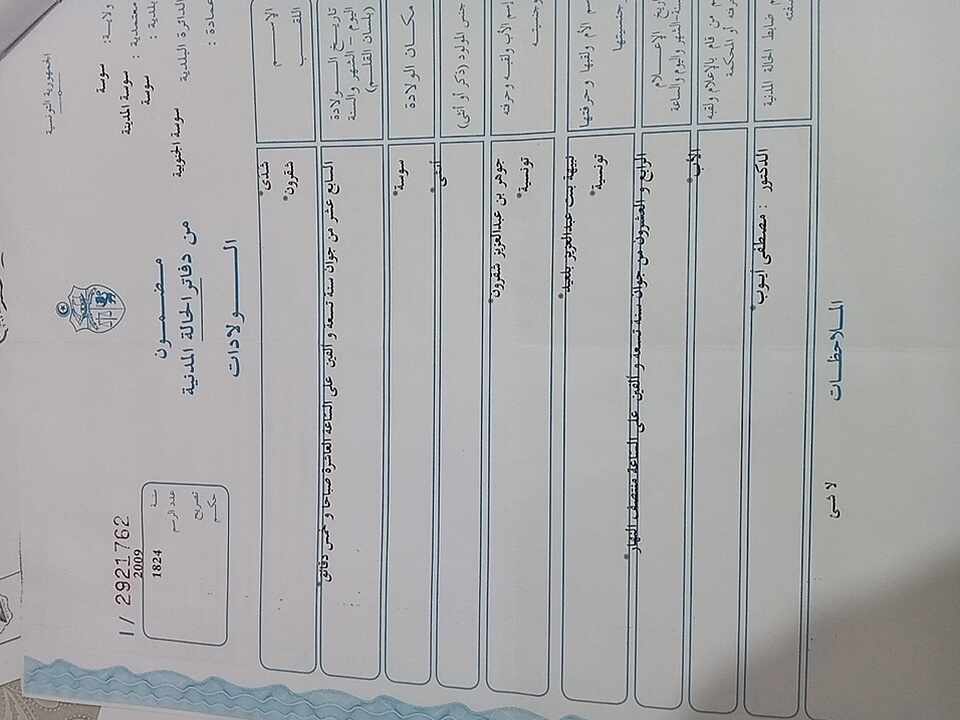 الجمهورية التونسية
ولاية: سوسة
معتمدية : سوسة المدينة
بلدية : سوسة
الدائرة البلدية سوسة الجنوبية
عمادة :
مضمون
من دفاتر الحالة المدنية
الولادات
I / 2921762
سنة 2009
عدد الرسم 1824
تصريح
حكم
الإسم شذى*
اللقب شقرون*
تاريخ الولادة
اليوم - الشهر والسنة
(بلسان القلم)
السابع عشر من جوان سنة تسعة و ألفين على الساعة العاشرة صباحا و خمس دقائق*
مكان الولادة سوسة*
جنس المولود (ذكر أو أنثى) أنثى*
إسم الأب ولقبه وحرفته جوهر بن عبدالعزيز شقرون*
وجنسيته تونسية*
إسم الأم ولقبها وحرفتها نبيهة بنت عبدالعزيز بلعيد*
وجنسيتها تونسية*
تاريخ الإعلام
السنة-الشهر واليوم والساعة
الرابع و العشرون من جوان سنة تسعة و ألفين على الساعة منتصف النهار*
من قام بالإعلام ولقبه
وحرفته أو المحكمة
الأب*
ضابط الحالة المدنية الدكتور : مصطفى أيوب*
الملاحظات
لا شئ